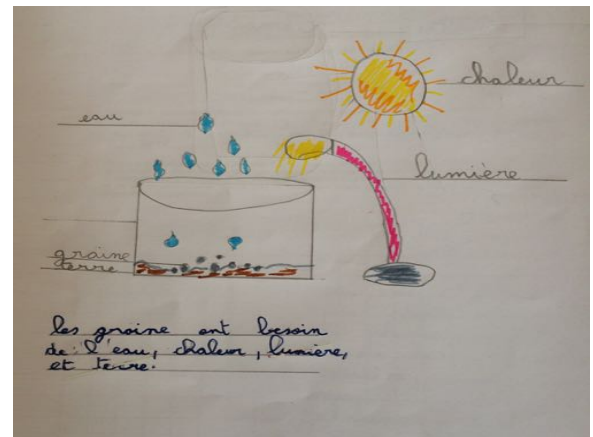 eau
chaleur
lumière
graine
terre
les graine ont besoin
de: l'eau, chaleur, lumière,
et terre.